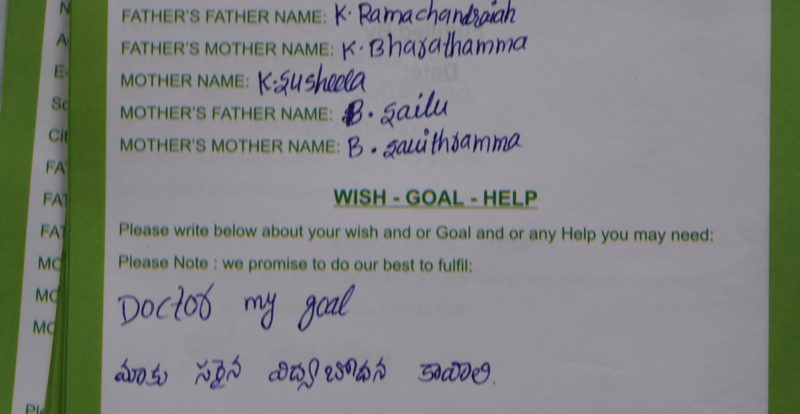 FATHER'S FATHER NAME: K. Ramachandraiah
FATHER'S MOTHER NAME: K. Bharathamma
MOTHER NAME: K. Susheela
MOTHER'S FATHER NAME: B. Sailu
MOTHER'S MOTHER NAME: B. Savithramma
WISH - GOAL - HELP
Please write below about your wish and or Goal and or any Help you may need:
Please Note : we promise to do our best to fulfil:
Doctor my goal
మాకు సరైన విద్యాబోధన కావాలి.
N
A
E-
Sc
Cit
FA
FA
FA
MO
MO
MO
Pl